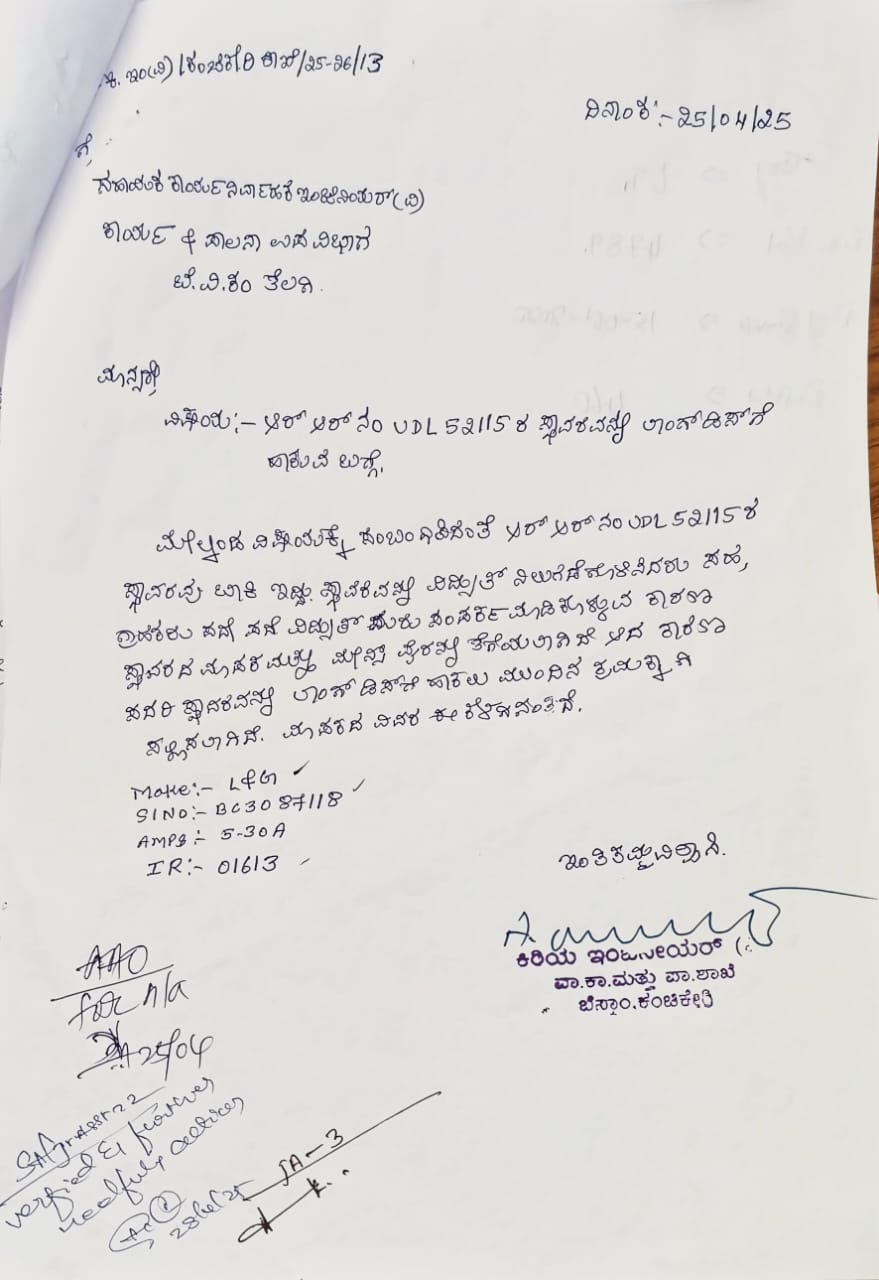 ಕಿ. ಇಂ(ವಿ) / ಕಂಚಿಕೇರಿ ಶಾಖೆ/25-26/13
ದಿನಾಂಕ:- 25/04/25
ಗೆ,
ಸಹಾಯಕ ಕಾರ್ಯನಿರ್ವಾಹಕ ಇಂಜಿನಿಯರ್(ವಿ)
ಕಾರ್ಯ & ಪಾಲನಾ ಉಪ ವಿಭಾಗ
ಬೆ.ವಿ.ಕಂ ತೆಲಗಿ.
ಮಾನ್ಯರೇ,
ವಿಷಯ:- ಆರ್ ಆರ್ ನಂ UDL 52115 ರ ಸ್ಥಾವರವನ್ನು ಲಾಂಗ್ ಡಿಸ್ ಗೆ
ಹಾಕುವ ಬಗ್ಗೆ.
ಮೇಲ್ಕಂಡ ವಿಷಯಕ್ಕೆ ಸಂಬಂಧಿಸಿದಂತೆ ಆರ್ ಆರ್ ನಂ UDL 52115 ರ
ಸ್ಥಾವರವು ಬಾಕಿ ಇದ್ದು ಸ್ಥಾವರವನ್ನು ವಿದ್ಯುತ್ ನಿಲುಗಡೆಗೊಳಿಸಿದರು ಸಹ,
ಗ್ರಾಹಕರು ಪದೇ ಪದೆ ವಿದ್ಯುತ್ ಮರು ಸಂಪರ್ಕ ಮಾಡಿಕೊಳ್ಳುವ ಕಾರಣ
ಸ್ಥಾವರದ ಮಾಪಕ ಮತ್ತು ಮೇನ್ಸ್ ವೈರನ್ನು ತೆಗೆಯಲಾಗಿದೆ ಆದ ಕಾರಣ
ಸದರಿ ಸ್ಥಾವರವನ್ನು ಲಾಂಗ್ ಡಿಸ್ ಗೆ ಹಾಕಲು ಮುಂದಿನ ಕ್ರಮಕ್ಕಾಗಿ
ಸಲ್ಲಿಸಲಾಗಿದೆ. ಮಾಪಕದ ವಿವರ ಈ ಕೆಳಗಿನಂತಿದೆ.
Make:- L&G
Sl No:- BC3087118
AMPS:- 5-30A
IR:- 01613
ಇಂತಿ ತಮ್ಮ ವಿಶ್ವಾಸಿ.
ಕಿರಿಯ ಇಂಜನೀಯರ್ (
ವಾ.ಕಾ.ಮತ್ತು ಪಾ.ಶಾಖೆ
ಬೆಸ್ಕಾಂ.ಕಂಚಿಕೇರಿ
AAO
for n/a
25/04
verified & further
needful
28/4/25
JA-3